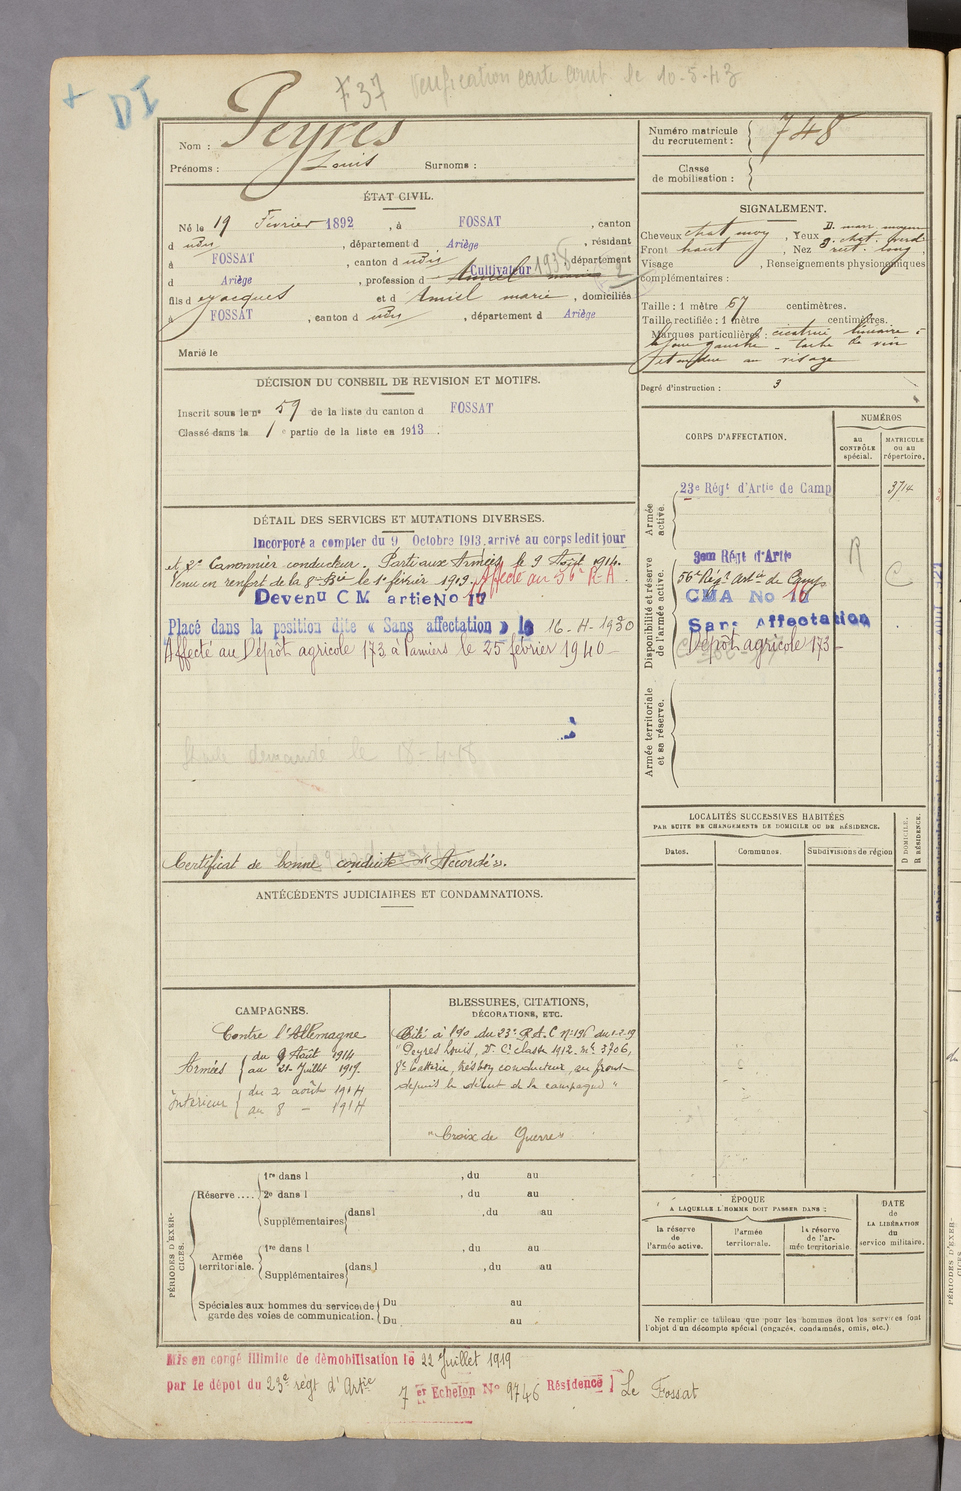 DI
F37 Verification carte comb le 10-5-43
Nom : Peyres
Prénoms : Louis Surnoms :
Numéro matricule
du recrutement : 748
Classe
de mobilisation :
ÉTAT CIVIL.
Né le 19 Février 1892, à FOSSAT, canton
d udit, département d Ariège, résidant
à FOSSAT, canton d udit 1938 département
d Ariège, profession d Cultivateur
fils d Jacques et d Amiel marie, domiciliés
à FOSSAT, canton d udit, département d Ariège
Marié le
SIGNALEMENT.
Cheveux chat moy, Yeux
Front haut, Nez rect. long,
Visage , Renseignements physionomiques
complémentaires :
Taille : 1 mètre 67 centimètres.
Taille rectifiée : 1 mètre centimètres.
Marques particulières : cicatrice linéaire à
la joue gauche - tache de vin
étendue au visage
Degré d'instruction : 3
DÉCISION DU CONSEIL DE REVISION ET MOTIFS.
Inscrit sous le nº 59 de la liste du canton d FOSSAT
Classé dans la 1e partie de la liste en 1913.
CORPS D'AFFECTATION.
NUMÉROS
au
CONTRÔLE
spécial.
MATRICULE
ou au
répertoire.
Armée
active.
23e Régt d'Artie de Camp 3714
Disponibilité et réserve
de l'armée active.
56e Régt Artie de Camp
CMA No 16
Sans Affectation
Dépôt agricole 173
R
C
Armée territoriale
et sa réserve.
DÉTAIL DES SERVICES ET MUTATIONS DIVERSES.
Incorporé a compter du 9 Octobre 1913. arrivé au corps ledit jour
et 2e Canonnier conducteur. Parti aux Armées le 9 Août 1914.
Venu en renfort de la 8e Bie le 1er février 1919. Affecté au 56e R A
Devenu CM artie No 16
Placé dans la position dite « Sans affectation » le 16-4-1930
Affecté au Dépôt agricole 173 à Pamiers le 25 février 1940
demandé le 18-4-18
Certificat de bonne conduite "Accordé".
LOCALITÉS SUCCESSIVES HABITÉES
PAR SUITE DE CHANGEMENTS DE DOMICILE OU DE RÉSIDENCE.
Dates.
Communes.
Subdivisions de région
D DOMICILE.
R RÉSIDENCE.
ANTÉCÉDENTS JUDICIAIRES ET CONDAMNATIONS.
CAMPAGNES.
Contre l'Allemagne
Armées du 9 Août 1914
au 21 Juillet 1919.
Intérieur du 2 août 1914
au 8 - 1914
BLESSURES, CITATIONS,
DÉCORATIONS, ETC.
Cité à l'ºo du 23e R.A.C Nº 196 du 1-2-19
"Peyres Louis, 2e Cr classe 1912. mle 3706,
8e batterie, très bon conducteur, au front
depuis le début de la campagne"
"Croix de Guerre"
PÉRIODES D'EXERCICES.
Réserve....
1re dans l , du au
2e dans l , du au
Supplémentaires dans l , du au
Armée
territoriale.
1re dans l , du au
Supplémentaires dans l , du au
Spéciales aux hommes du service de
garde des voies de communication.
Du au
Du au
ÉPOQUE
A LAQUELLE L'HOMME DOIT PASSER DANS :
la réserve
de
l'armée active.
l'armée
territoriale.
la réserve
de l'ar-
mée territoriale.
DATE
de
LA LIBÉRATION
du
service militaire.
Ne remplir ce tableau que pour les hommes dont les services font
l'objet d'un décompte spécial (engagés, condamnés, omis, etc.)
Mis en congé illimité de démobilisation le 22 Juillet 1919
par le dépôt du 23e régt d'Artie
7 er Echelon No 9746 Résidence Le Fossat